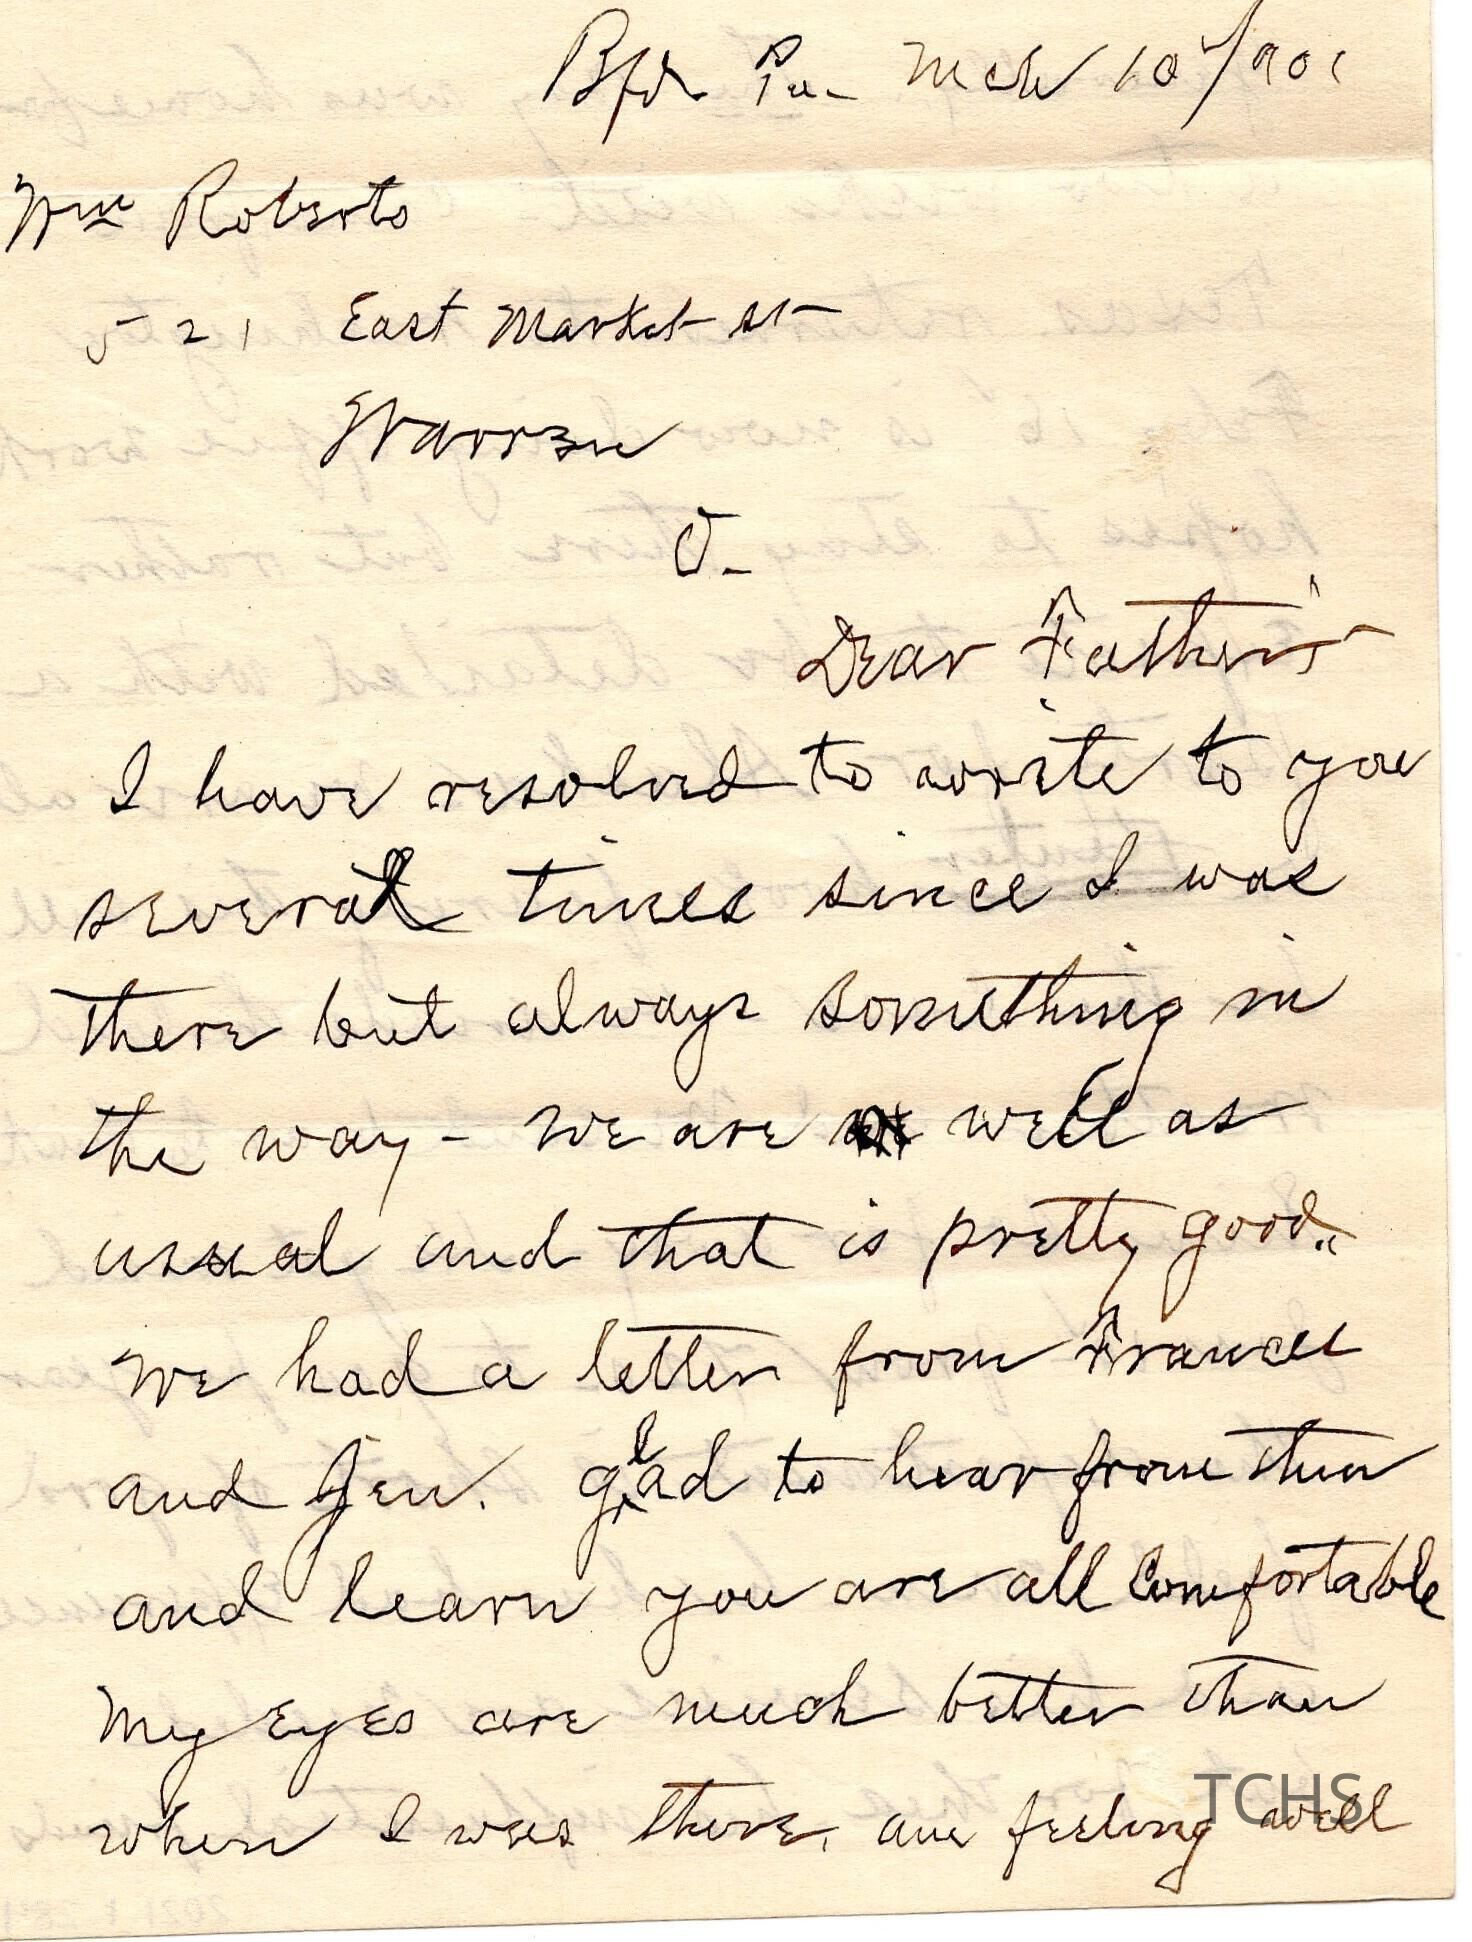 Bfd. Pa. Mch 10/901
Wm Roberts
521 East Market st
Warren
O-
Dear Father
I have resolved to write to you
several times since I was
there but always something in
the way - We are well as
usual and that is pretty good..
We had a letter from Frances
and Jen. glad to hear from them
and learn you are all Comfortable
My Eyes are much better than
when I was there. am feeling well
TCHS